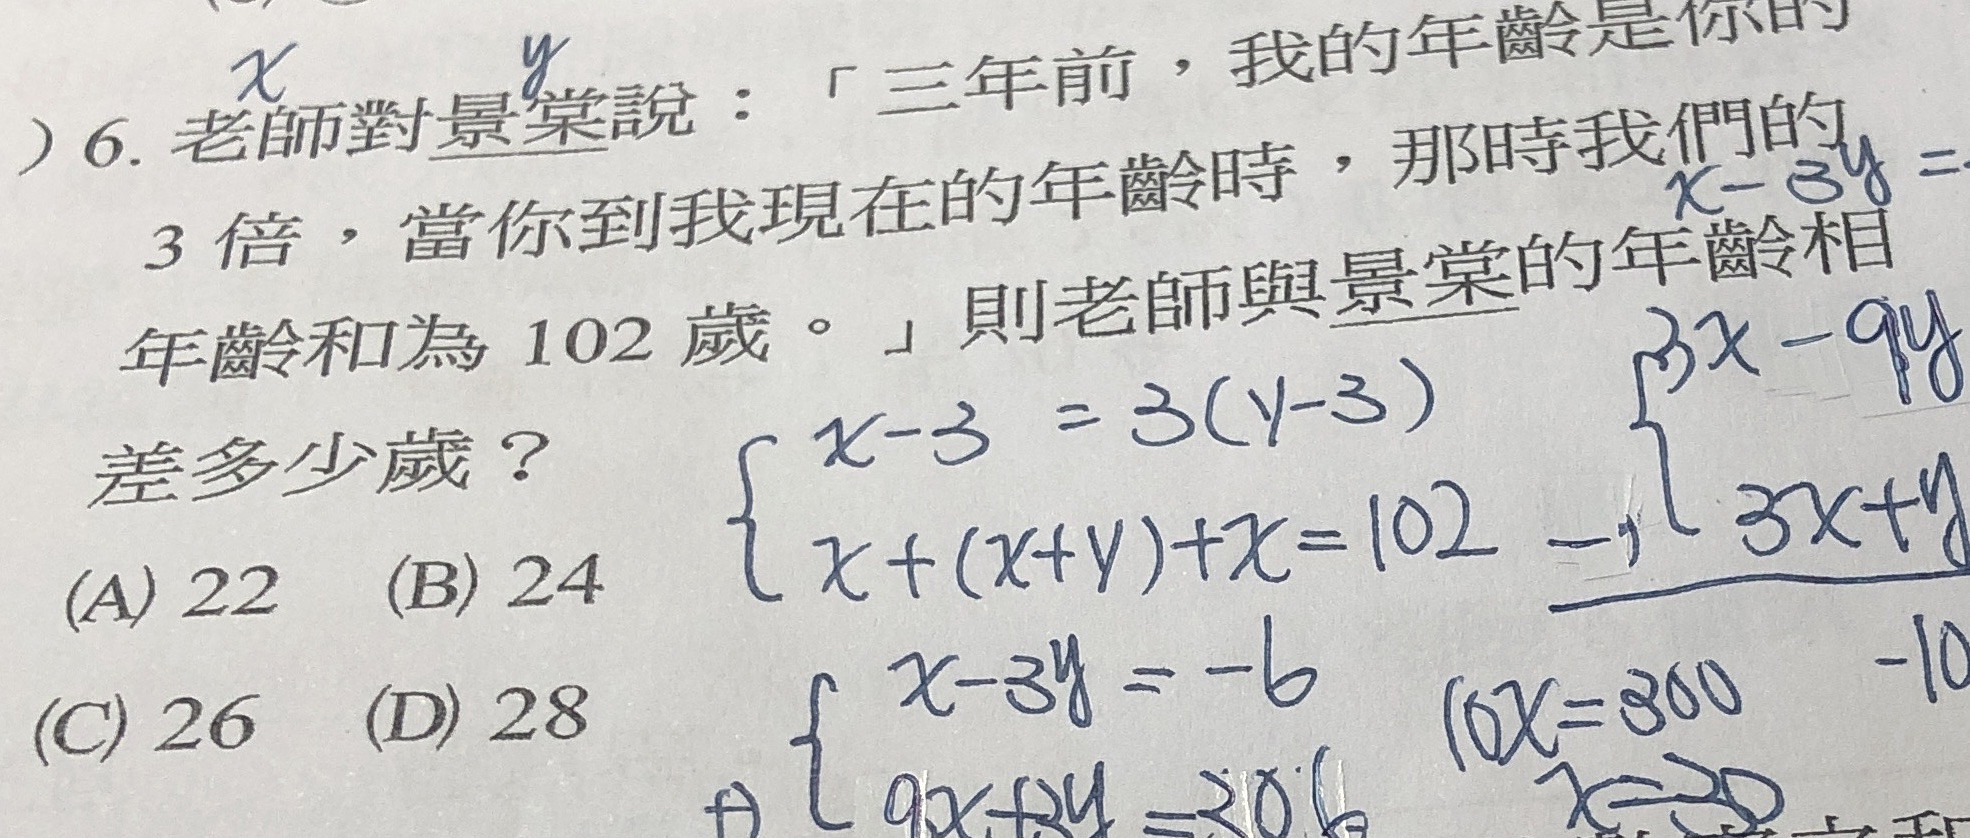 x y
)6. 老師對景棠說：「三年前，我的年齡是你的
3 倍，當你到我現在的年齡時，那時我們的
x-3y=
年齡和為 102 歲。」則老師與景棠的年齡相
差多少歲？
x-3 = 3(y-3)
3x-9y
x+(x+y)+x=102
3x+y
(A) 22 (B) 24
x-3y=-6
10x=300
-10
(C) 26 (D) 28
9x+3y=306
x=30